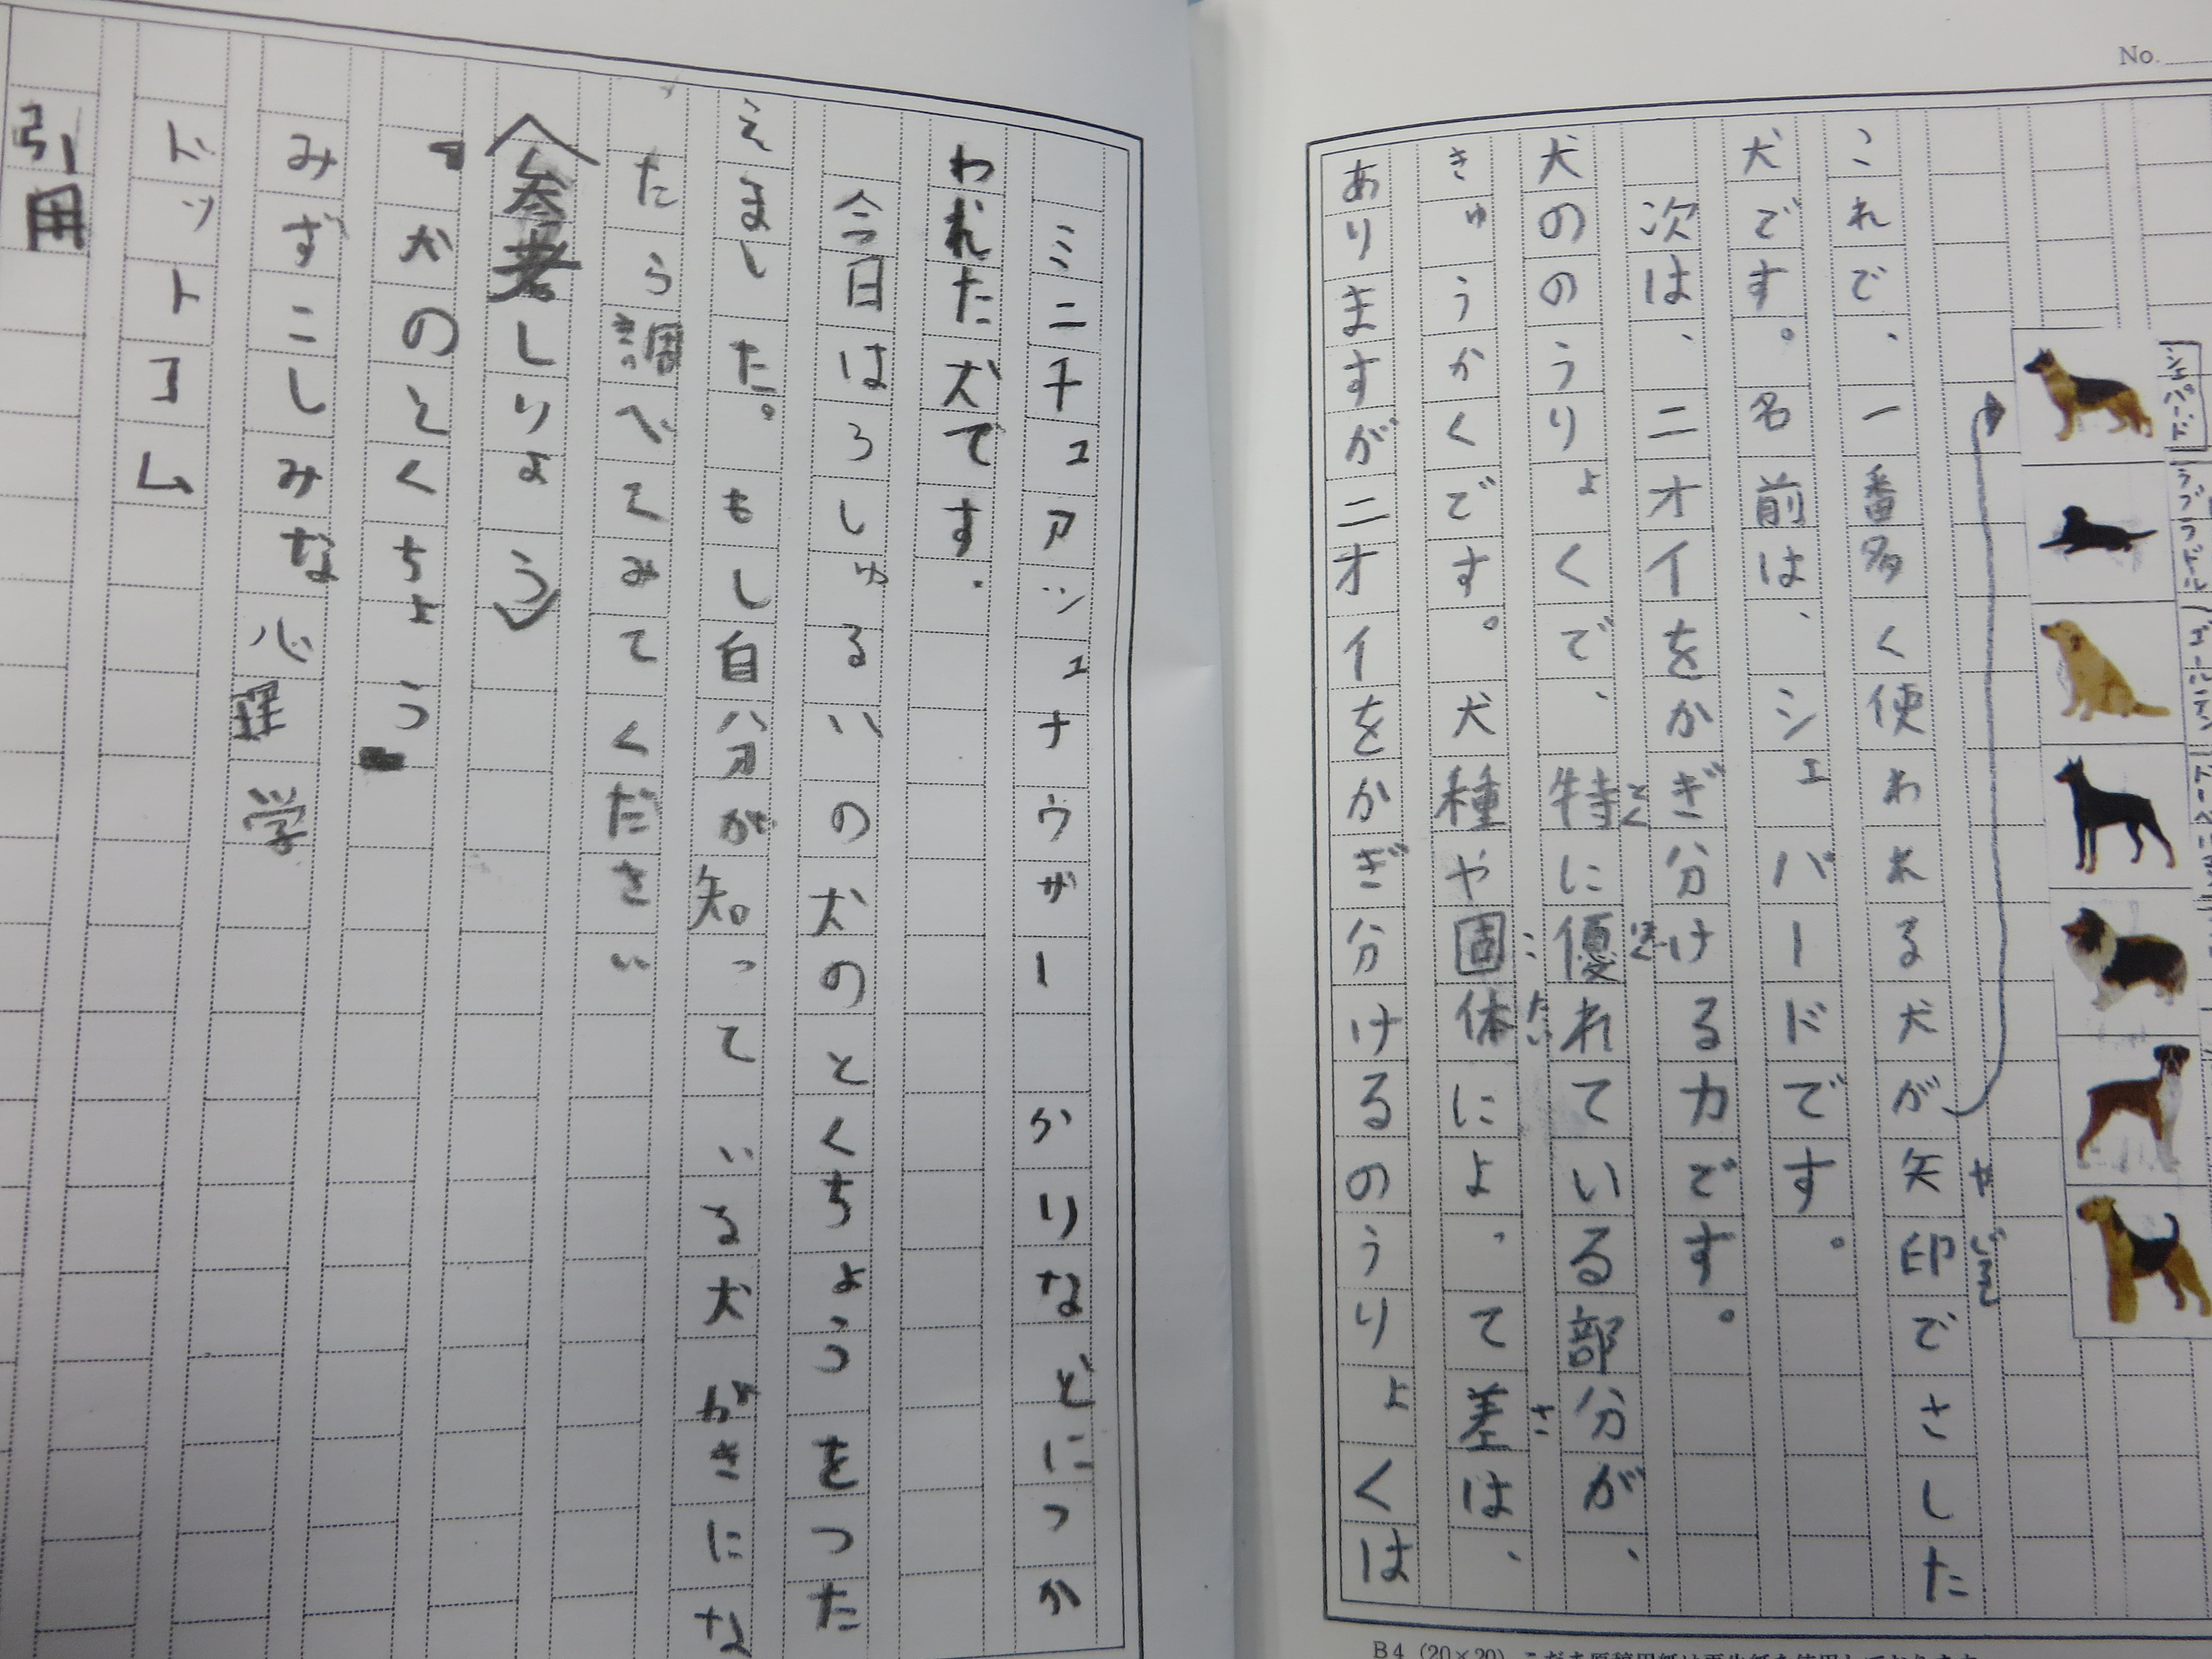 No.
これで、一番多く使われる犬が矢印でさした
やじるし
犬です。名前は、シェパードです。
次は、ニオイをかぎ分ける力です。
犬ののうりょくで、特に優れている部分が、
きゅうかくです。犬種や固体によって差は、
こ たい さ
ありますがニオイをかぎ分けるのうりょくは
ミニチュアッシュナウザー かりなどにつか
われた犬です.
今日はろしゅるいの犬のとくちょうをつた
えました。もし自分が知っている犬がきにな
たら調べてみてください
〈参考しりょう〉
犬のとくちょう
みずこしみな心理学
ドットコム
引用